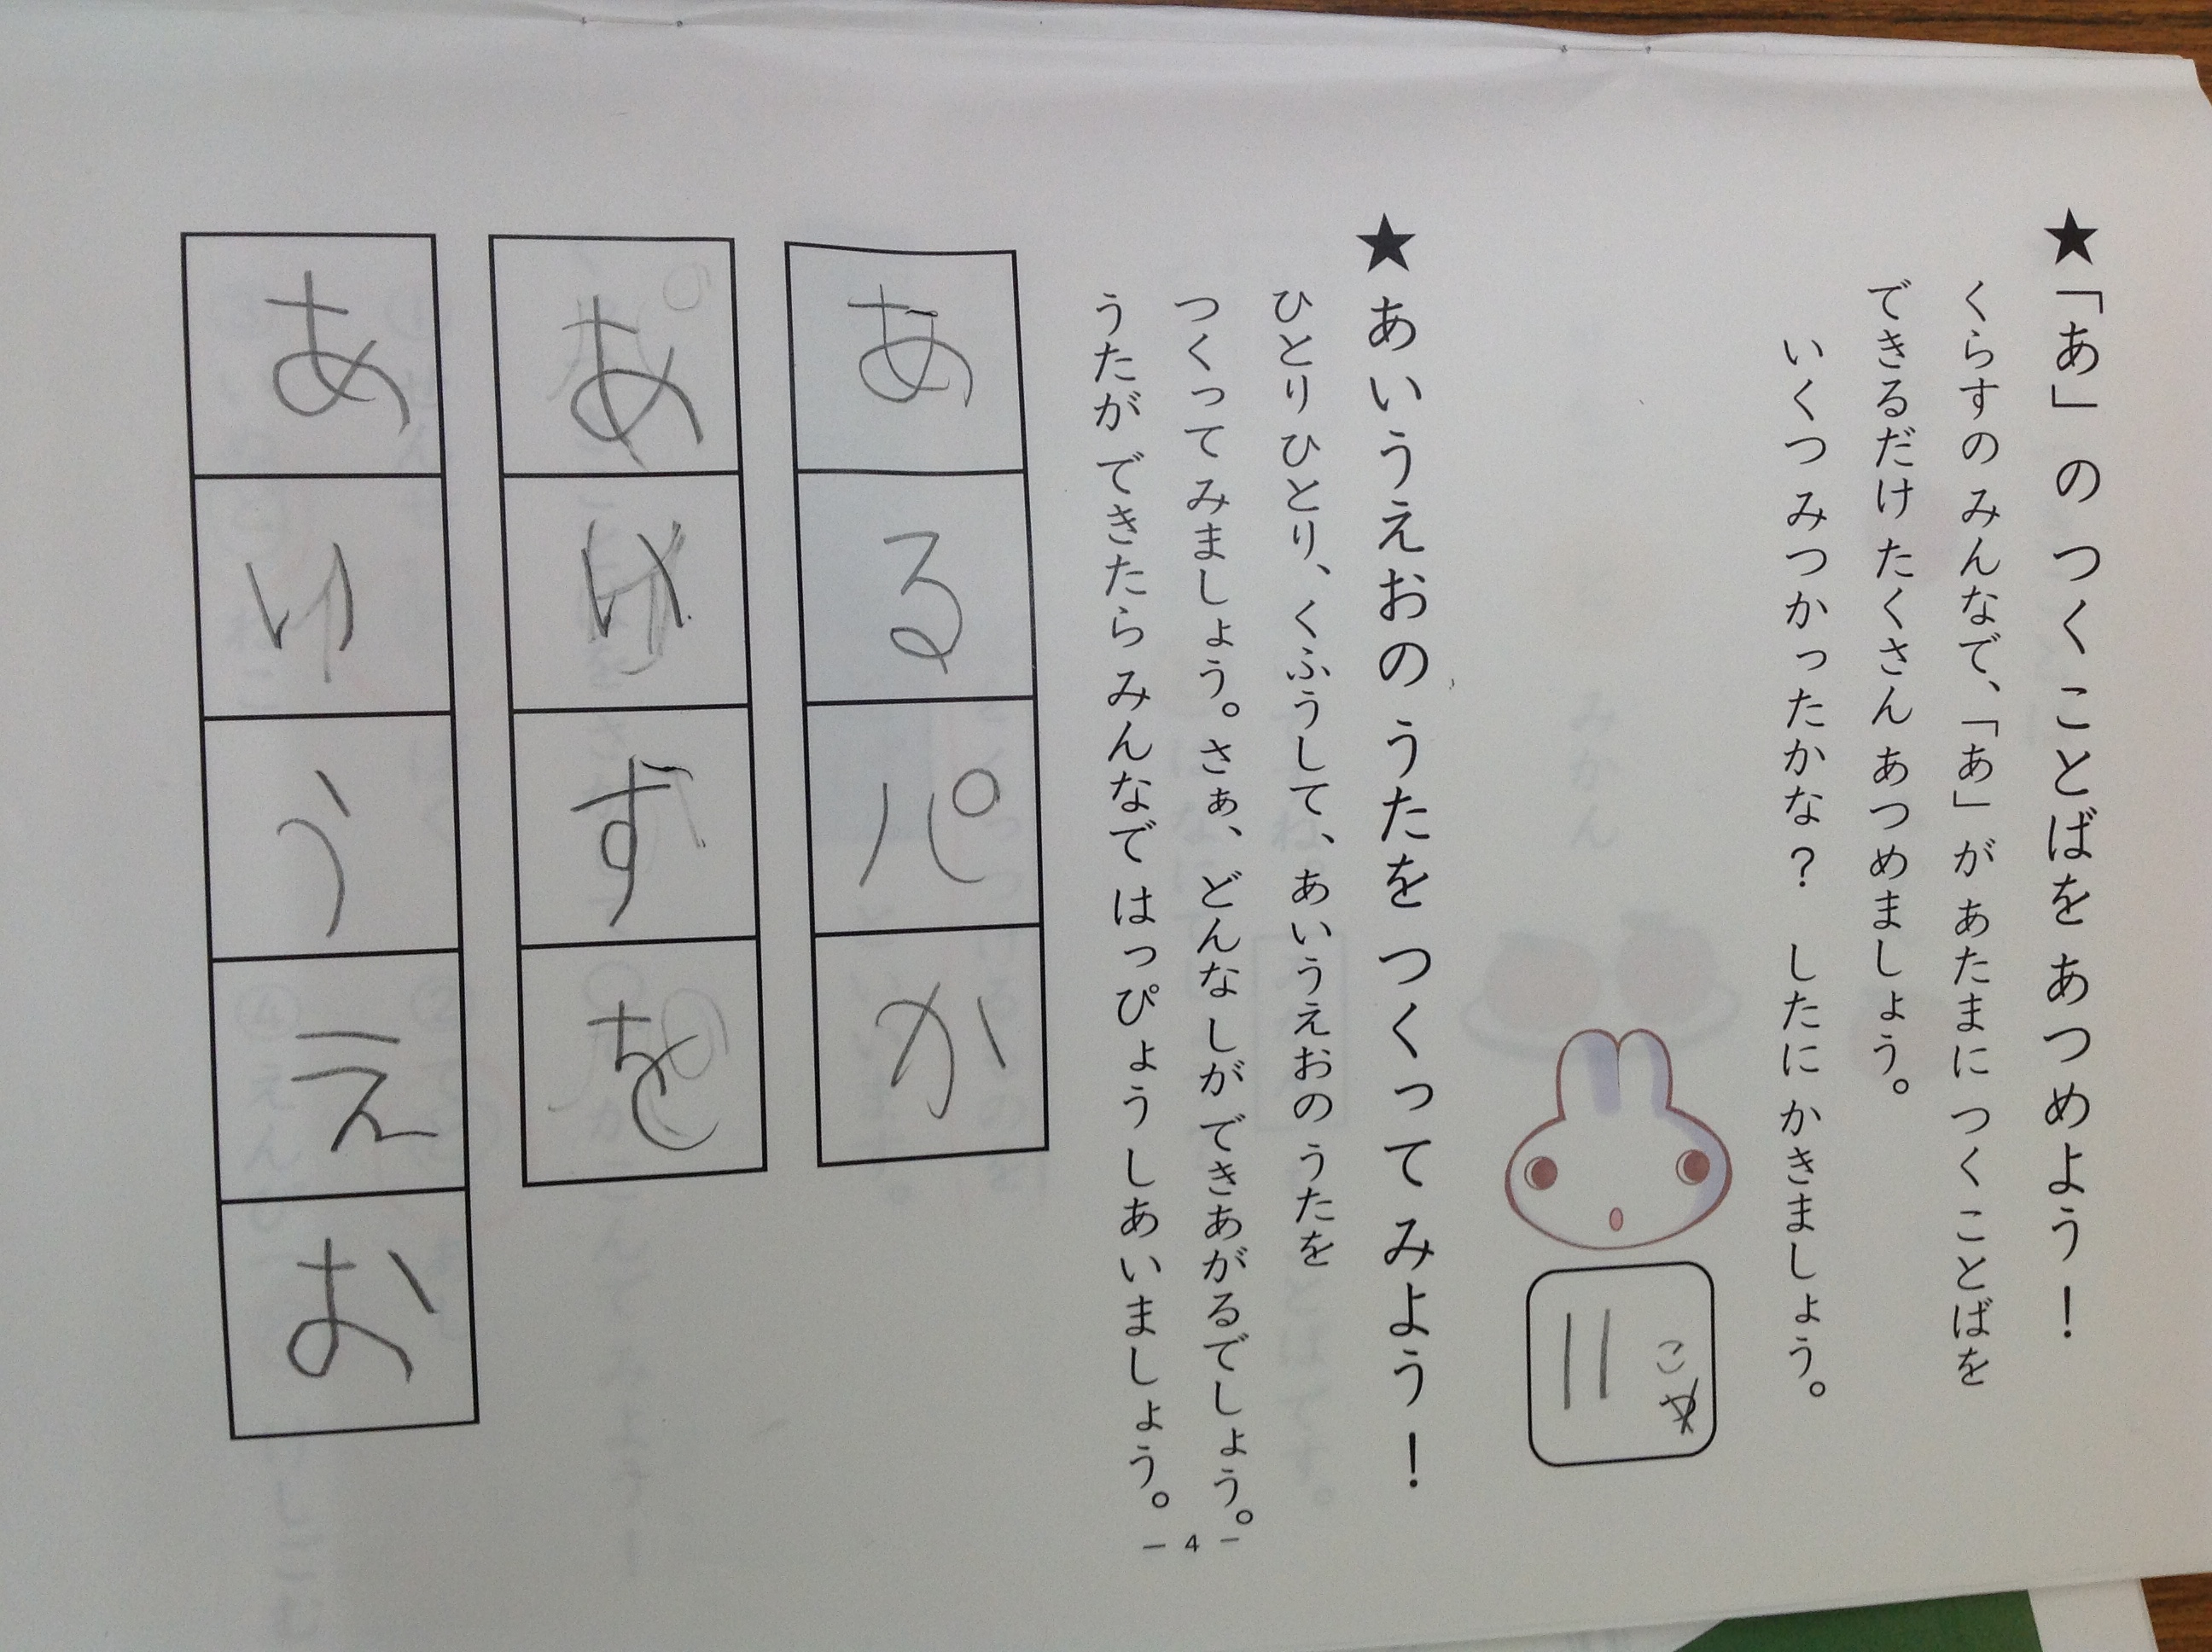 ★「あ」の つくことばを あつめよう！
くらすの みんなで、「あ」が あたまに つく ことばを
できるだけ たくさん あつめましょう。
いくつ みつかったかな？ したに かきましょう。
11こ
★あいうえおの うたを つくって みよう！
ひとりひとり、くふうして、あいうえおの うたを
つくって みましょう。さぁ、どんな しが できあがるでしょう。
うたが できたら みんなで はっぴょう しあいましょう。
あるパか
あ すを
あいうえお
－ 4 －